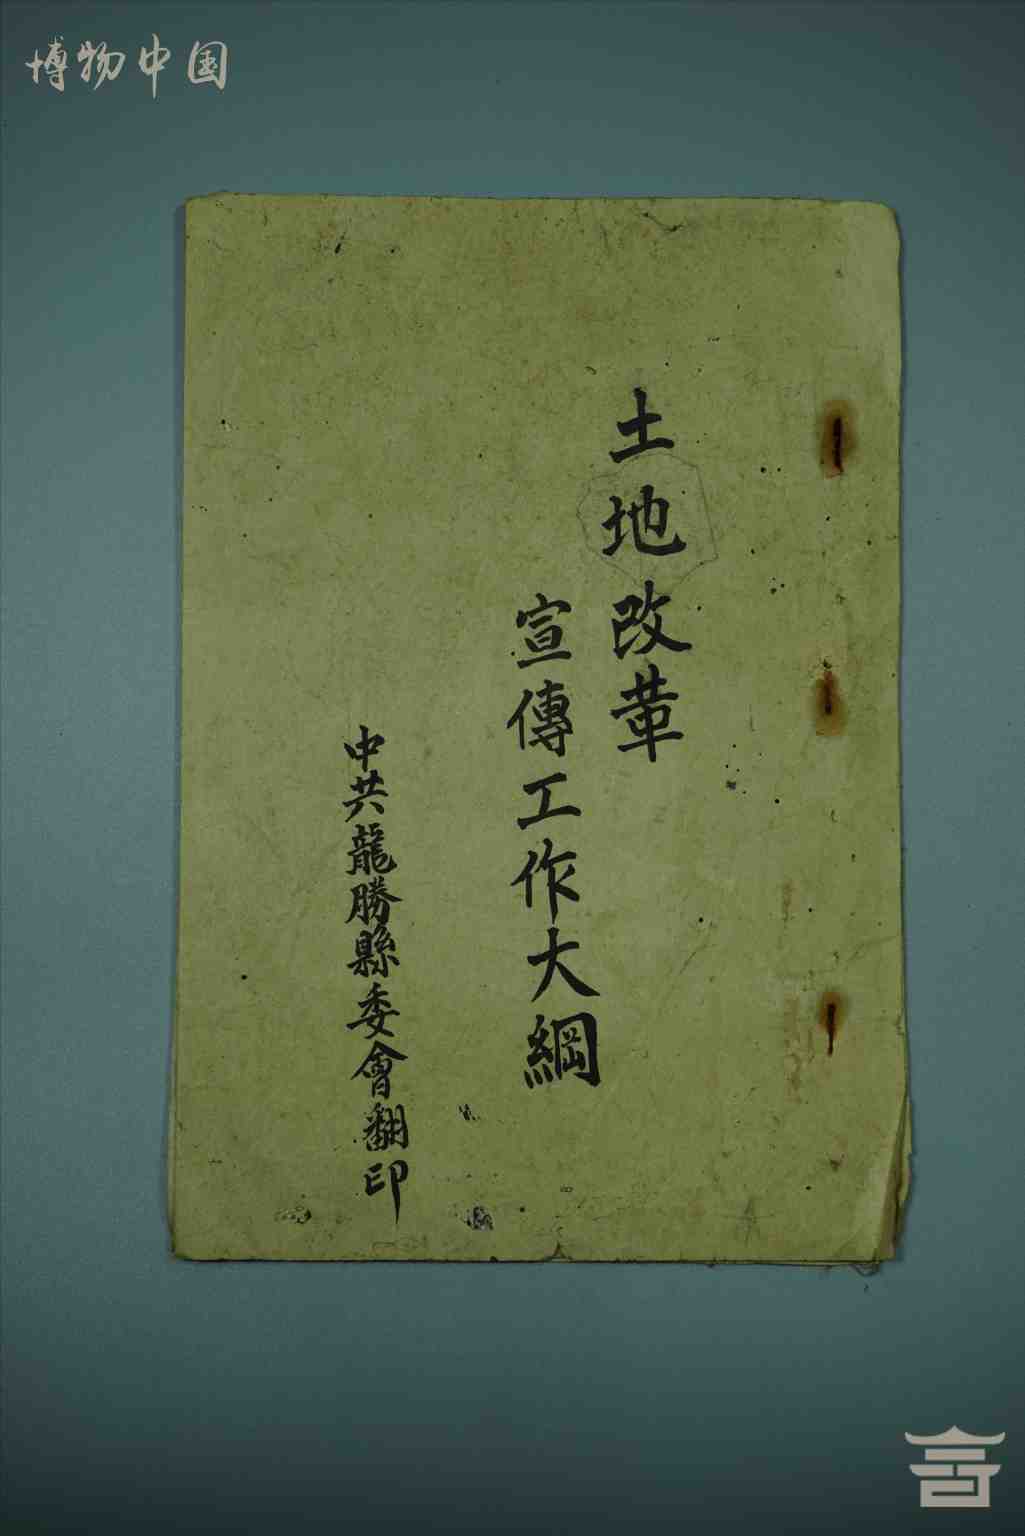 博物中国
土地改革
宣傳工作大綱
中共龍勝縣委會翻印